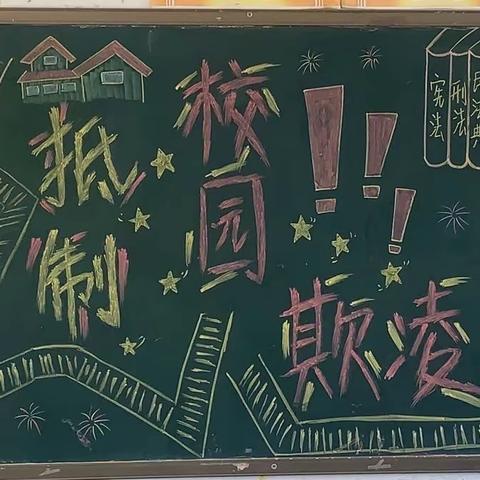 抵制
校园
欺凌
!!!
宪法
刑法
民法典